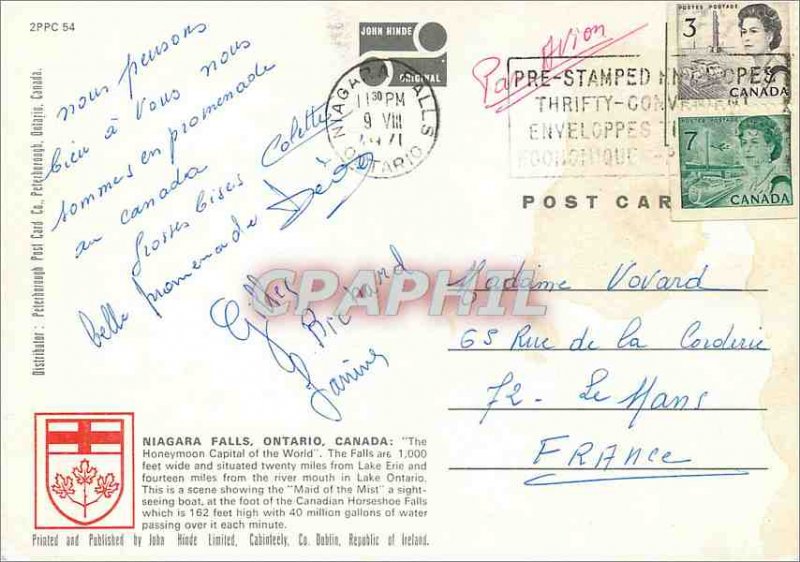 2PPC 54
JOHN HINDE
ORIGINAL
Par Avion
POSTES POSTAGE
3
CANADA
NIAGARA FALLS
11 30 PM
9 VIII
ONTARIO
PRE-STAMPED ENVELOPES
THRIFTY-CONVENIENT
ENVELOPPES
ECONOMIQUE
POSTES POSTAGE
7
CANADA
POST CAR
nous pensons
bien à vous nous
sommes en promenade
au canada
Grosses bises Colette
belle promenade
Gilles
Richard
Janine
CPAPHIL
Madame Vovard
65 Rue de la Corderie
72 - Le Mans
FRANCE
Distributor : Peterborough Post Card Co., Peterborough, Ontario, Canada.
NIAGARA FALLS, ONTARIO, CANADA: "The
Honeymoon Capital of the World". The Falls are 1,000
feet wide and situated twenty miles from Lake Erie and
fourteen miles from the river mouth in Lake Ontario.
This is a scene showing the "Maid of the Mist" a sight-
seeing boat, at the foot of the Canadian Horseshoe Falls
which is 162 feet high with 40 million gallons of water
passing over it each minute.
Printed and Published by John Hinde Limited, Cabinteely, Co. Dublin, Republic of Ireland.